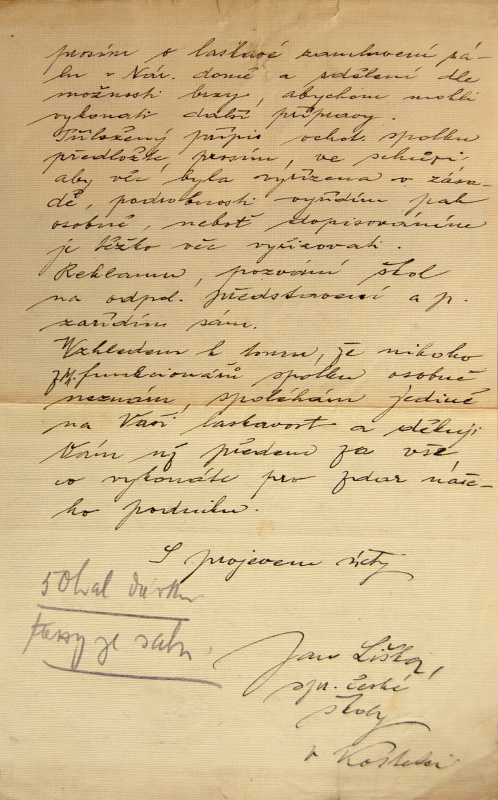 prosím o laskavé zamluvení sá-
lu v Nár. domě a sdělení dle
možnosti brzy, abychom mohli
vykonati další přípravy.
Přiložený přípis ochot. spolku
předložte, prosím, ve schůzi
aby věc byla vyřízena v zása-
dě, podrobnosti vyřídím pak
osobně, neboť dopisováním
je těžko věc vyřizovati.
Reklamu, pozvání škol
na odpol. představení a p.
zařídím sám.
Vzhledem k tomu, že nikoho
z pp. funkcionářů spolku osobně
neznám, spoléhám jedině
na Vaši laskavost a děkuji
Vám již předem za vše
co vykonáte pro zdar naše-
ho podniku.
S projevem úcty
50 hal
ze sálu
Jan Liška,
spr. české
školy
v Kostelci